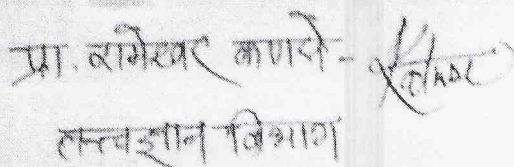 प्रा. रामेश्वर कणसे -
तत्त्वज्ञान विभाग